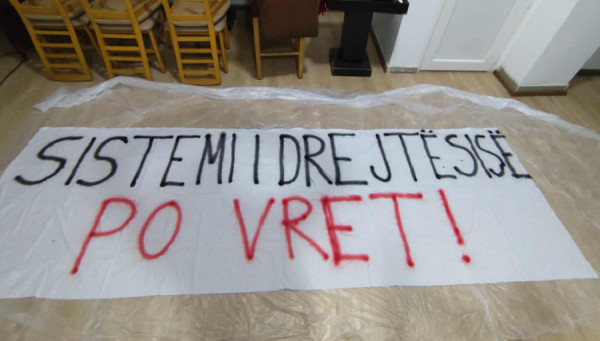 SISTEMI I DREJTËSISË
PO VRET!